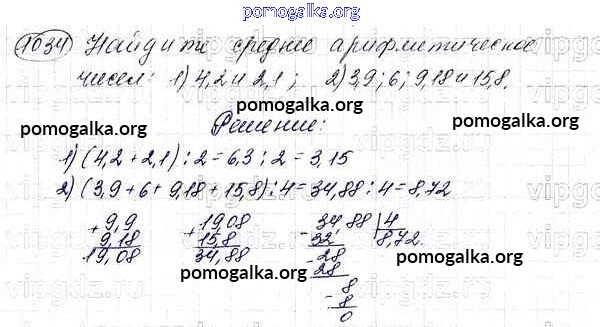 pomogalka.org
1034 Найдите среднее арифметическое
чисел: 1) 4,2 и 2,1; 2) 3,9; 6; 9,18 и 15,8.
pomogalka.org pomogalka.org
Решение:
1) (4,2 + 2,1) : 2 = 6,3 : 2 = 3,15
pomogalka.org
2) (3,9 + 6 + 9,18 + 15,8) : 4 = 34,88 : 4 = 8,72
+ 9,9 + 19,08 - 34,88 | 4
9,18 15,8 32 8,72.
19,08 34,88 - 28
pomogalka.org 28 pomogalka.org
8
- 8
0
pomogalka.org
vipgdz.ru
vipgdz.ru
vipgdz.ru